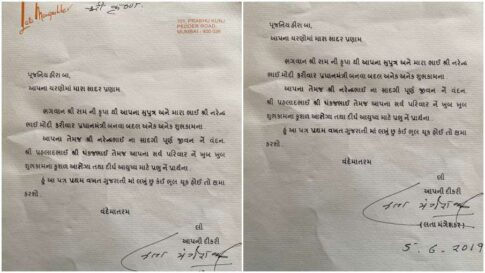 Lata Mangeshkar
101, PRABHU KUNJ
PEDDER ROAD,
MUMBAI - 400 026
પૂજનિય હીરા બા,
આપના ચરણોમાં મારા સાદર પ્રણામ
ભગવાન શ્રી રામ ની કૃપા થી આપના સુપુત્ર અને મારા ભાઈ શ્રી નરેન્દ્ર
ભાઈ મોદી ફરીવાર પ્રધાનમંત્રી બનવા બદલ અનેક અનેક શુભકામના
આપના તેમજ શ્રી નરેન્દ્રભાઈ ના સાદગી પૂર્ણ જીવન ને વંદન
શ્રી પ્રહલાદભાઈ શ્રી પંકજભાઈ તેમજ આપના સર્વ પરિવાર ને ખુબ ખુબ
શુભકામના કુશળ આરોગ્ય તથા દીર્ઘ આયુષ્ય માટે પ્રભુ ને પ્રાર્થના
હું આ પત્ર પ્રથમ વખત ગુજરાતી માં લખું છુ કંઈ ભુલ ચૂક હોઈ તો ક્ષમા
કરશો
વંદેમાતરમ
લી
આપની દીકરી
પૂજનિય હીરા બા,
આપના ચરણોમાં મારા સાદર પ્રણામ
ભગવાન શ્રી રામ ની કૃપા થી આપના સુપુત્ર અને મારા ભાઈ શ્રી નરેન્દ્ર
ભાઈ મોદી ફરીવાર પ્રધાનમંત્રી બનવા બદલ અનેક અનેક શુભકામના
આપના તેમજ શ્રી નરેન્દ્રભાઈ ના સાદગી પૂર્ણ જીવન ને વંદન
શ્રી પ્રહલાદભાઈ શ્રી પંકજભાઈ તેમજ આપના સર્વ પરિવાર ને ખુબ ખુબ
શુભકામના કુશળ આરોગ્ય તથા દીર્ઘ આયુષ્ય માટે પ્રભુ ને પ્રાર્થના
હું આ પત્ર પ્રથમ વખત ગુજરાતી માં લખું છુ કંઈ ભુલ ચૂક હોઈ તો ક્ષમા
કરશો
વંદેમાતરમ
લી
આપની દીકરી
(લતા મંગેશકર)
5. 6. 2019